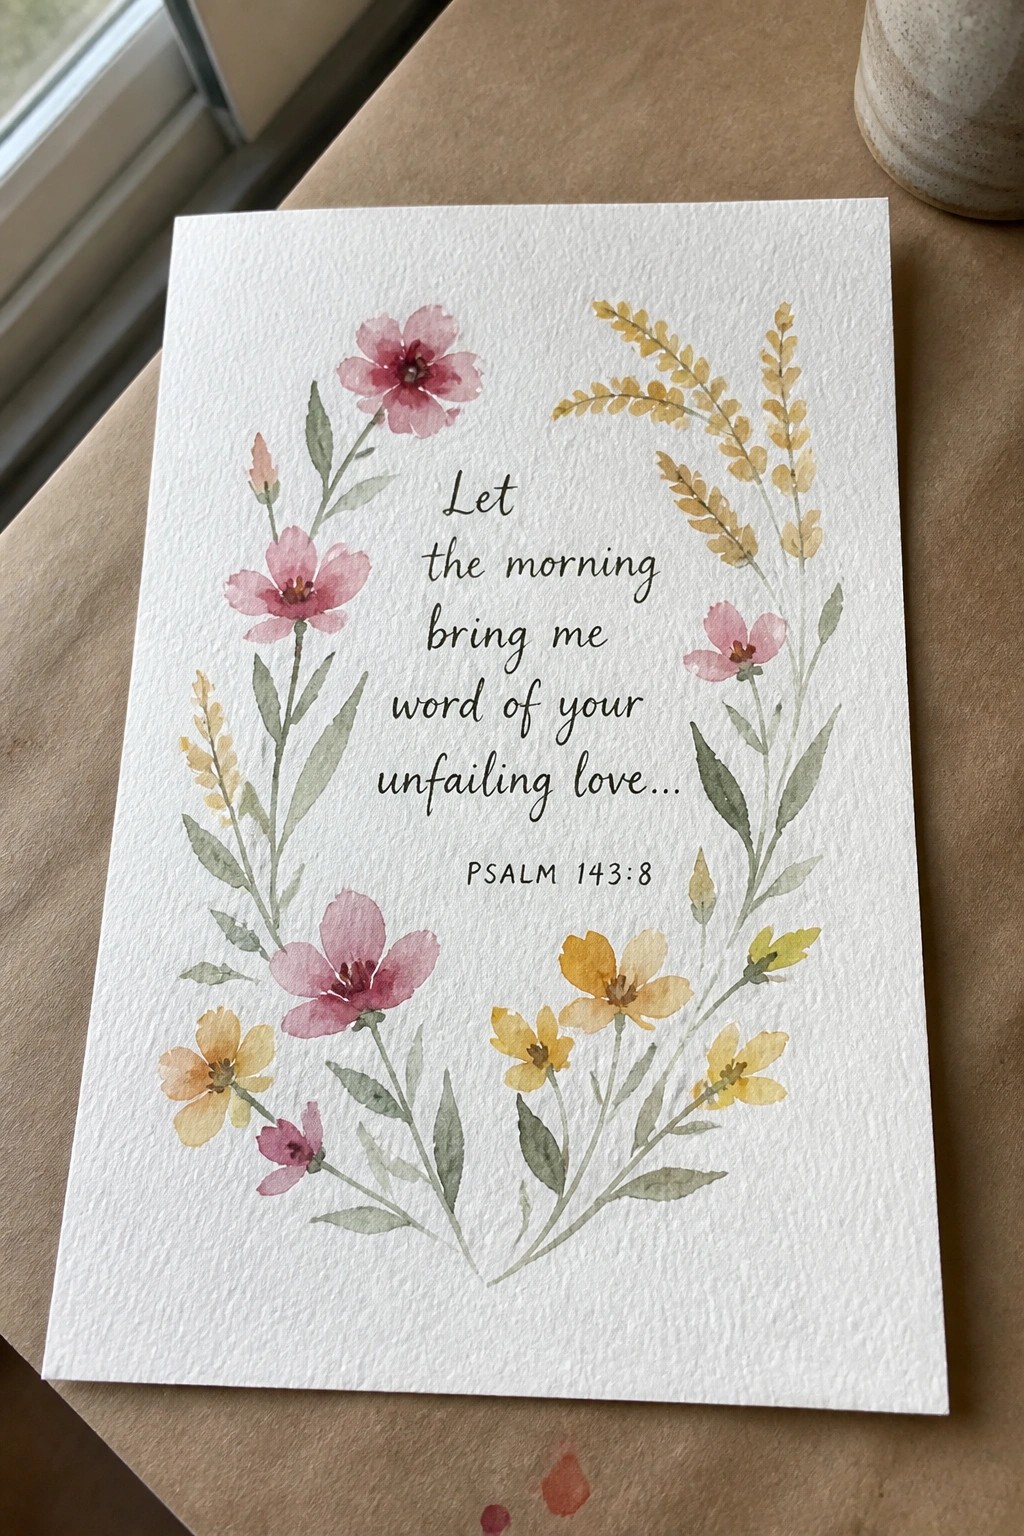 Let
the morning
bring me
word of your
unfailing love...
PSALM 143:8